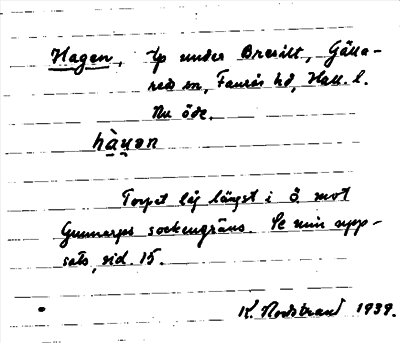 Hagen, tp under Bresilt, Gälla-
red sn, Faurås hd, Hall. l.
Nu öde.
hàgən
Torpet låg längst i Ö mot
Gunnarps sockengräns. Se min upp-
sats, sid. 15.
K. Nordstrand 1939.